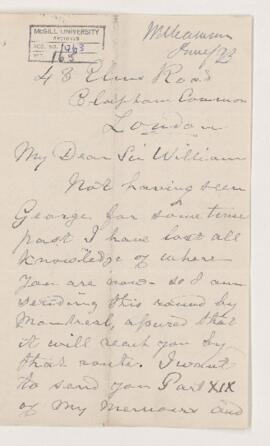 McGILL UNIVERSITY
ARCHIVES
ACC. NO. 1963
REF. 163
June 1/93
48 Elms Road
Clapham Common
London
My Dear Sir William
Not having seen
George for some time
past I have lost all
knowledge of where
you are now - so I am
sending this round by
Montreal, assured that
it will reach you by
that route. I want
to send you Part XIX
of my Memoirs and